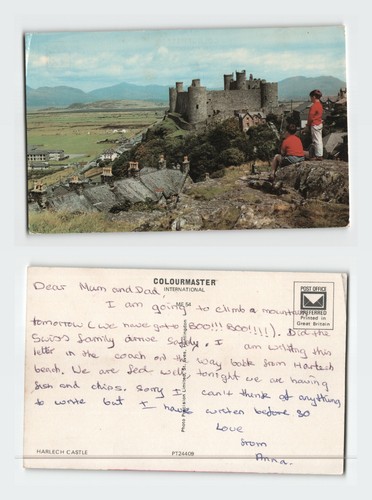 Dear Mum and Dad,
COLOURMASTER
INTERNATIONAL
POST OFFICE
PREFERRED
Printed in
Great Britain
I am going to climb a mountain
tomorrow (we have got to BOO!!! BOO!!!!). Did the
Swiss family arrive safely. I am writing this
letter in the coach on the way back from Harlech
beach. We are fed well tonight we are having
fish and chips. Sorry I can't think of anything
to write but I have written before so
Love
from
Anna.
HARLECH CASTLE
PT24408